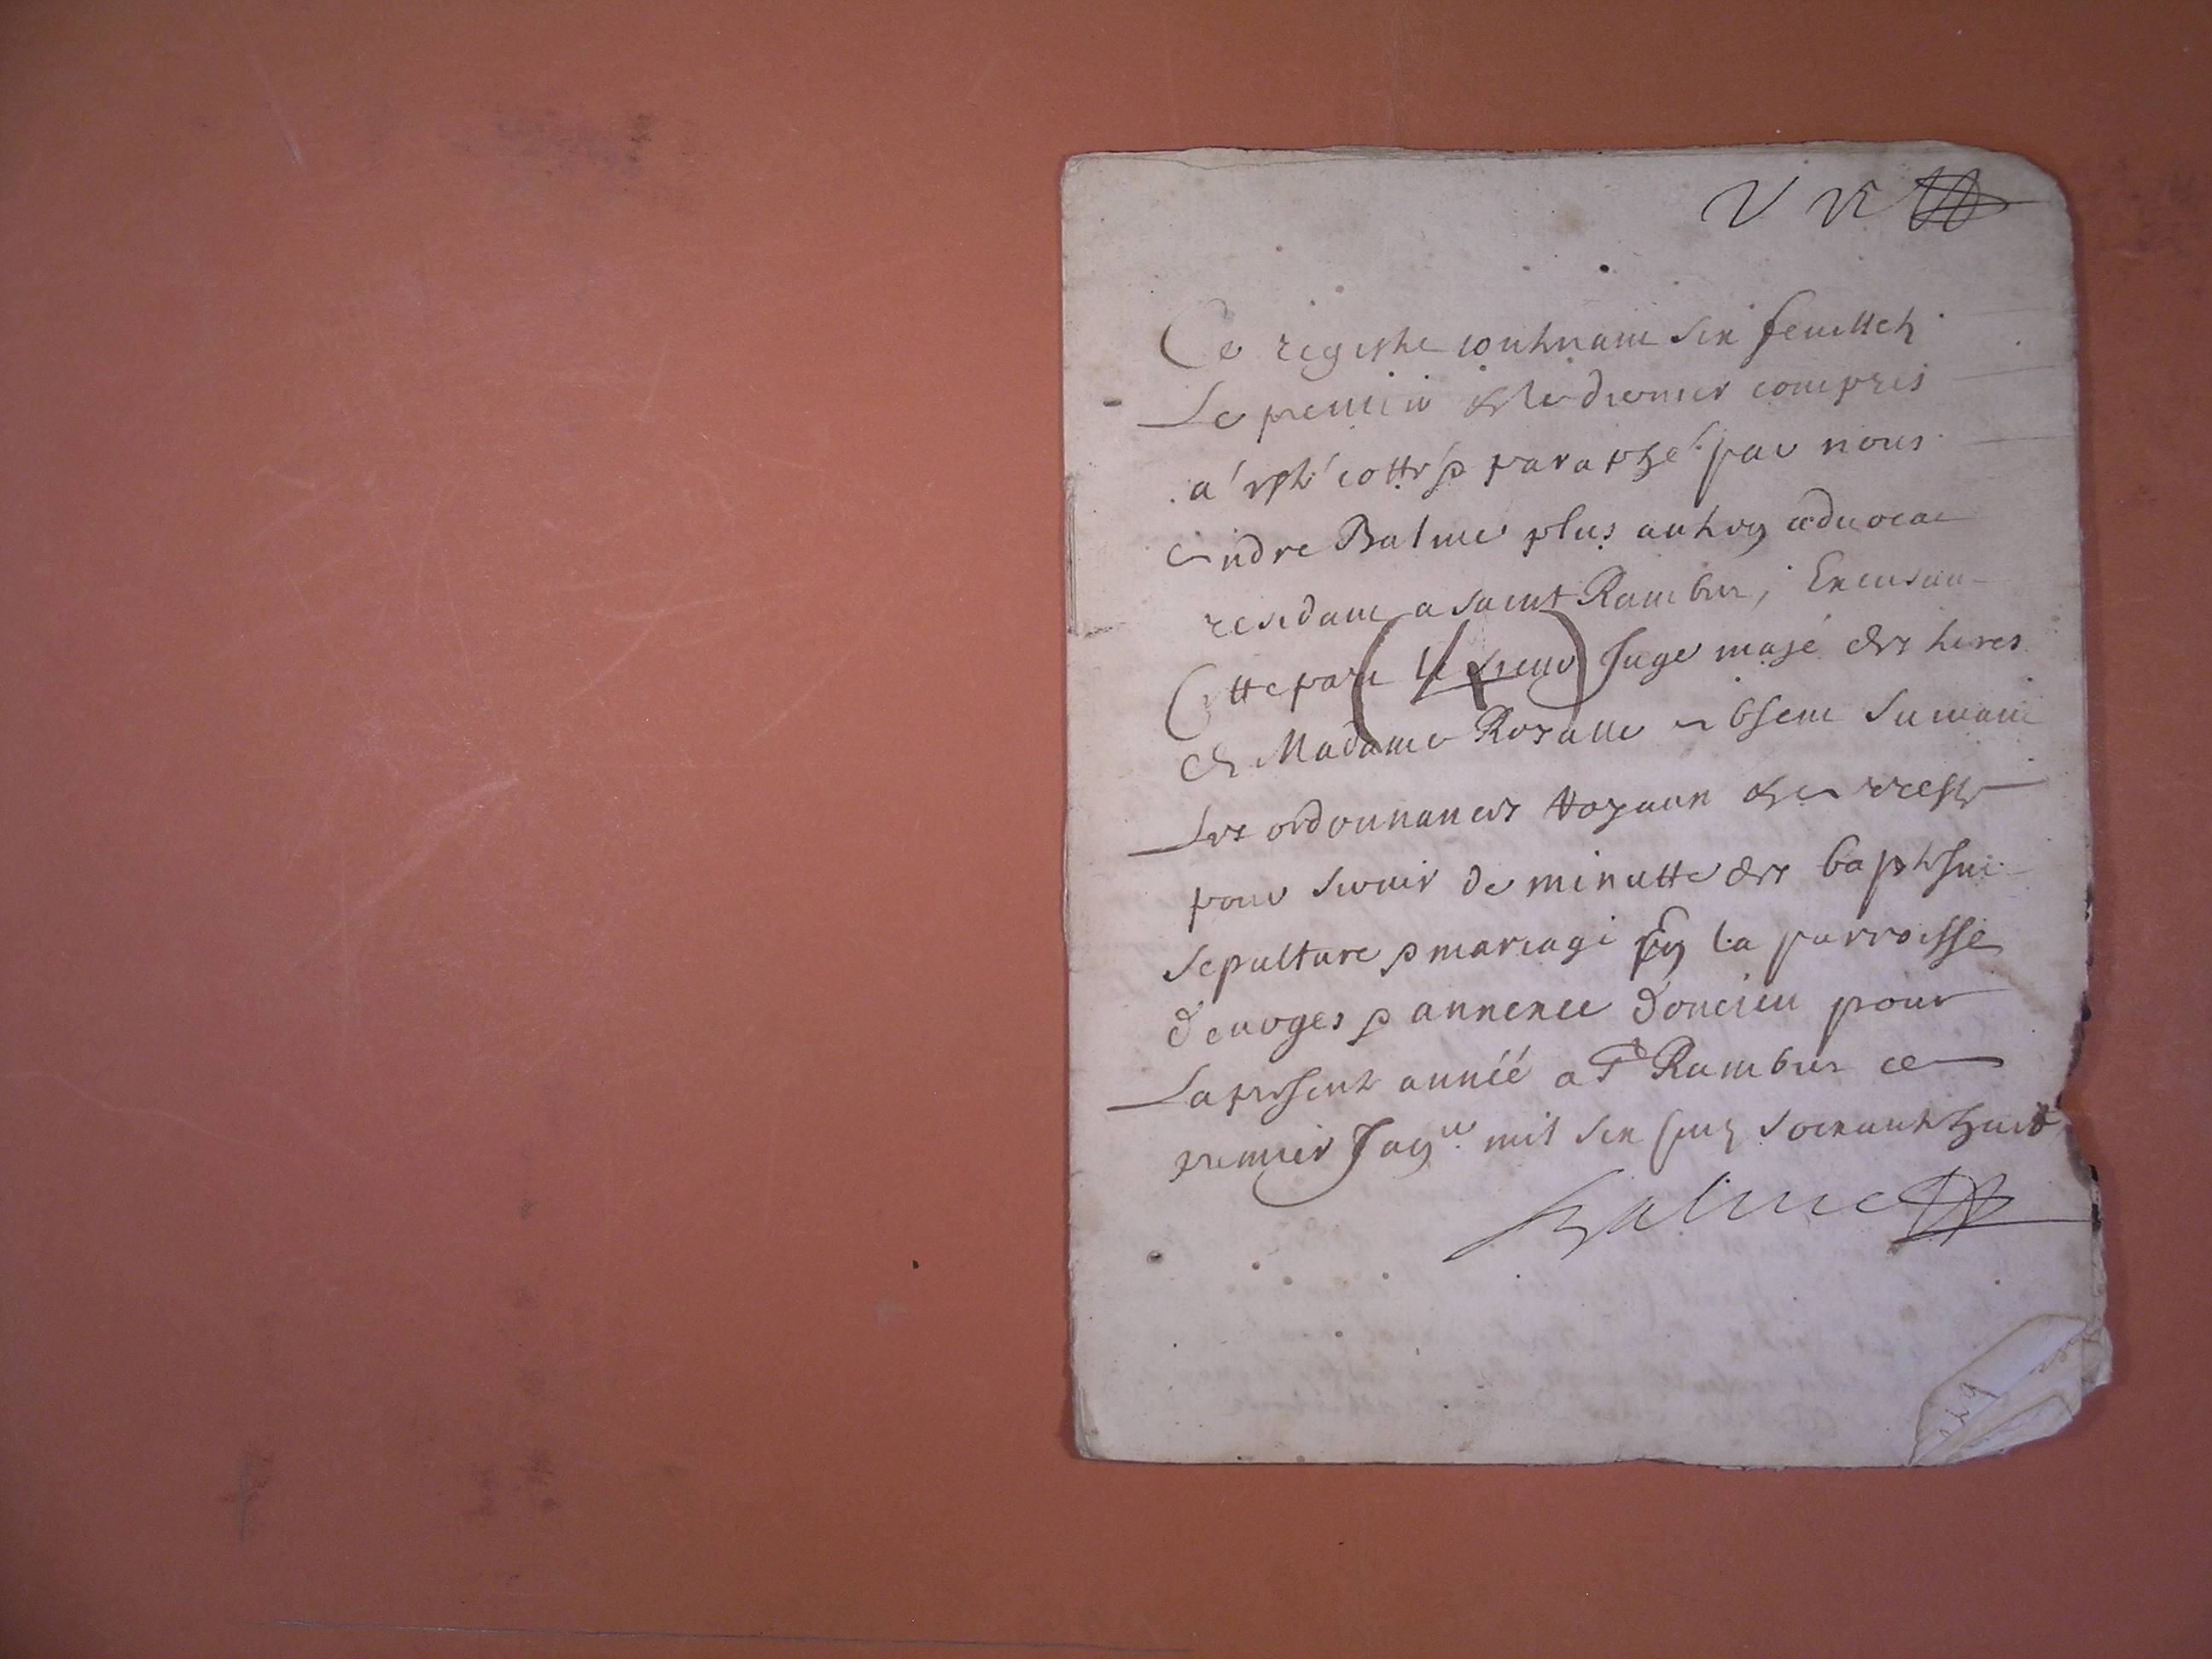 Ce registre contenant six feuillets
Le premier & le dernier compris
a esté cotté & paraphé par nous
André Balme plus antien advocat
residant a saint Rambert, Exerceant
Cette part le Juge maje des terres
de Madame Royalle absent suivant
Les ordonnances Royaux &
pour servir de minutte des baptesme
sepulture & mariage en la parroisse
d'evoges & annexe d'oncieu pour
La presente année a St Rambert ce
premier Janer mil six cens soixante huit
Balme